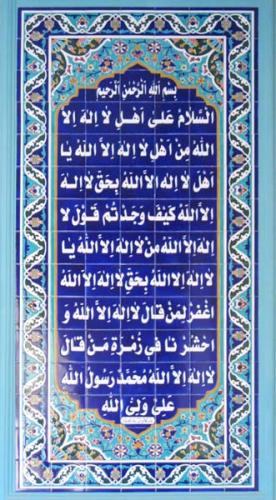 بِسْمِ اللهِ الرَّحْمنِ الرَّحيمِ
اَلسَّلامُ عَلى اَهْلِ لا اِلهَ اِلاَّ
اللهُ مِنْ اَهْلِ لا اِلهَ اِلاَّ اللهُ يا
اَهْلَ لا اِلهَ اِلاَّ اللهُ بِحَقِّ لا اِلهَ
اِلاَّ اللهُ كَيْفَ وَجَدْتُمْ قَوْلَ لا
اِلهَ اِلاَّ اللهُ مِنْ لا اِلهَ اِلاَّ اللهُ يا
لا اِلهَ اِلاَّ اللهُ بِحَقِّ لا اِلهَ اِلاَّ اللهُ
اِغْفِرْ لِمَنْ قالَ لا اِلهَ اِلاَّ اللهُ وَ
احْشُرْنا في زُمْرَةِ مَنْ قالَ
لا اِلهَ اِلاَّ اللهُ مُحَمَّدٌ رَسُولُ اللهِ
عَلِيٌّ وَلِيُّ اللهِ